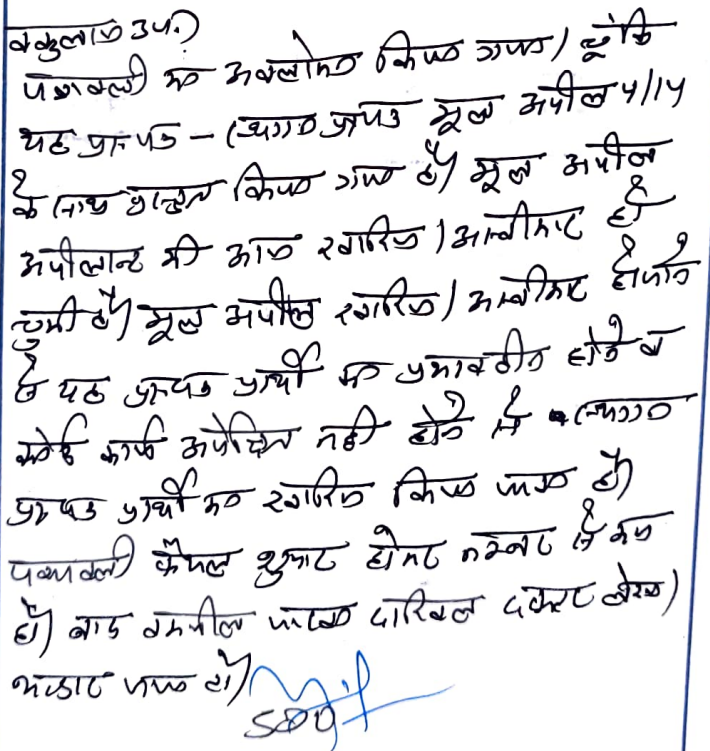 वकुलाय उप.)
पत्रावली का अवलोकन किया गया) चूंकि
यह प्रा.पत्र – स्थगन प्रा.पत्र मूल अपील 4/14
के साथ प्रस्तुत किया गया है) मूल अपील
अपीलान्ट की आज खारिज) अस्वीकार हो
चुकी है) मूल अपील खारिज) अस्वीकार होजाने
से यह प्रा.पत्र प्रार्थी का प्रभावहीन होने व
कोई कार्य अपेक्षित नही होने से स्थगन
प्रा.पत्र प्रार्थी का खारिज किया जाता है)
पत्रावली फैसल शुमार होकर नम्बर से कम
हो) बाद तकमील जाब्ता दाखिल दफ्तर
जावे)
SDO